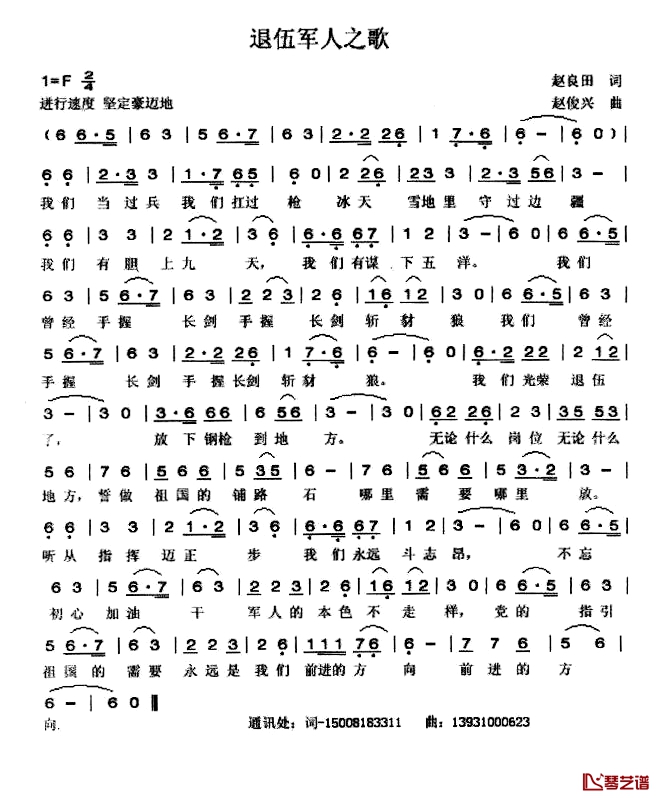 退伍军人之歌
1=F 2/4 赵良田 词
进行速度 坚定豪迈地 赵俊兴 曲
(6 6·5 | 6 3 | 5 6·7 | 6 3 | 2·2 26 | 1 7·6 | 6 - | 6 0) |
6 6 | 2·3 3 | 1·7 65 | 6 0 | 2 26 | 23 3 | 2·3 56 | 3 - |
我们 当过兵 我们扛过 枪 冰天 雪地里 守过边 疆
6 6 | 3 3 | 2 1·2 | 3 6 | 6·6 67 | 1 2 | 3 - | 6 0 | 6 6·5 |
我们 有胆 上九 天, 我们有谋 下五 洋。 我们
6 3 | 5 6·7 | 6 3 | 2 23 | 2 6 | 16 12 | 3 0 | 6 6·5 | 6 3 |
曾经 手握 长剑 手握 长剑 斩豺 狼 我们 曾经
5 6·7 | 6 3 | 2·2 26 | 1 7·6 | 6 - | 6 0 | 6·2 22 | 2 12 |
手握 长剑 手握长剑 斩豺 狼。 我们光荣 退伍
3 - | 3 0 | 3·6 66 | 6 56 | 3 - | 3 0 | 62 26 | 2 3 | 35 53 |
了, 放下钢枪 到地 方。 无论什么 岗位 无论什么
5 6 | 7 6 | 5 66 | 5 35 | 6 - | 7 6 | 5 66 | 5 3·2 | 3 - |
地方, 誓做 祖国的 铺路 石 哪里 需要 哪里 放。
6 6 | 3 3 | 2 1·2 | 3 6 | 6·6 67 | 1 2 | 3 - | 6 0 | 6 6·5 |
听从 指挥 迈正 步 我们永远 斗志 昂, 不忘
6 3 | 5 6·7 | 6 3 | 2 23 | 2 6 | 16 12 | 3 0 | 6 6·5 | 6 3 |
初心 加油 干 军人的 本色 不走 样, 党的 指引
5 6·7 | 6 3 | 2 23 | 2 6 | 111 76 | 6 - | 7 6 | 5 6 |
祖国 的 需要 永远是 我们 前进的方 向 前进 的方
6 - | 6 0 ‖
向. 通讯处: 词-15008183311 曲: 13931000623
琴艺谱